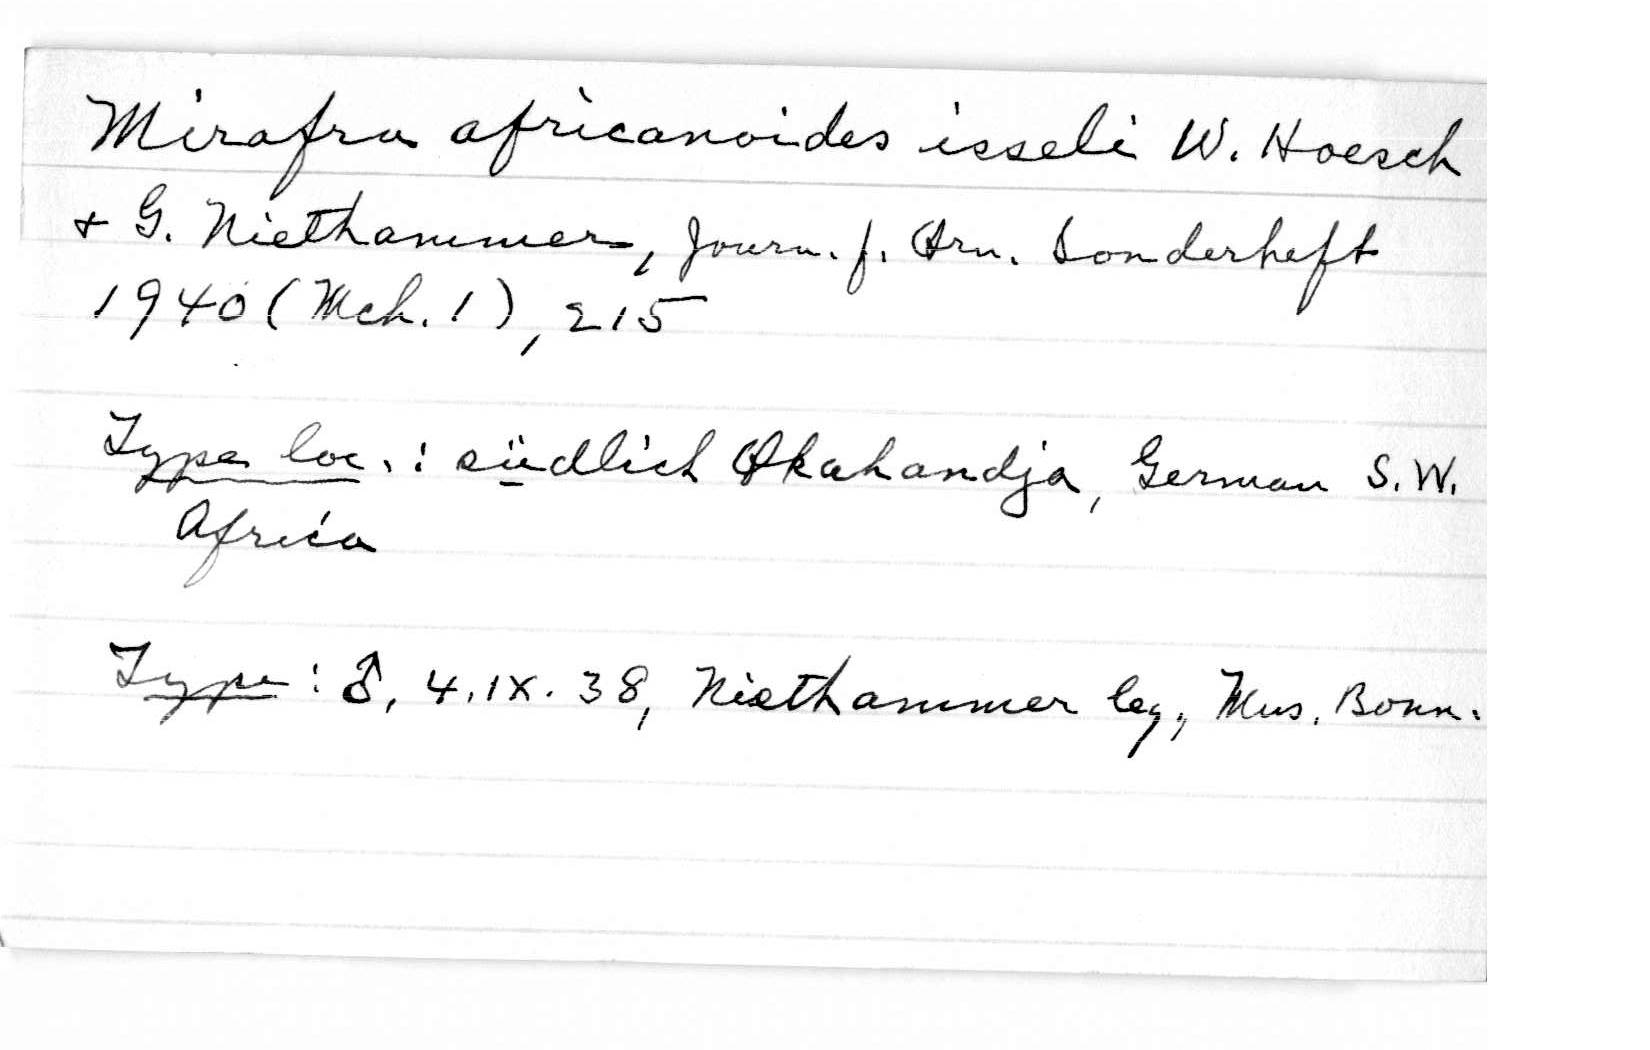 Mirafra africanoides isseli W. Hoesch
+ G. Niethammer, Journ. f. Orn. Sonderheft
1940 (Mch. 1), 215
Type loc.: südlich Okahandja, German S.W.
Africa
Type: ♂, 4.IX.38, Niethammer leg., Mus. Bonn.